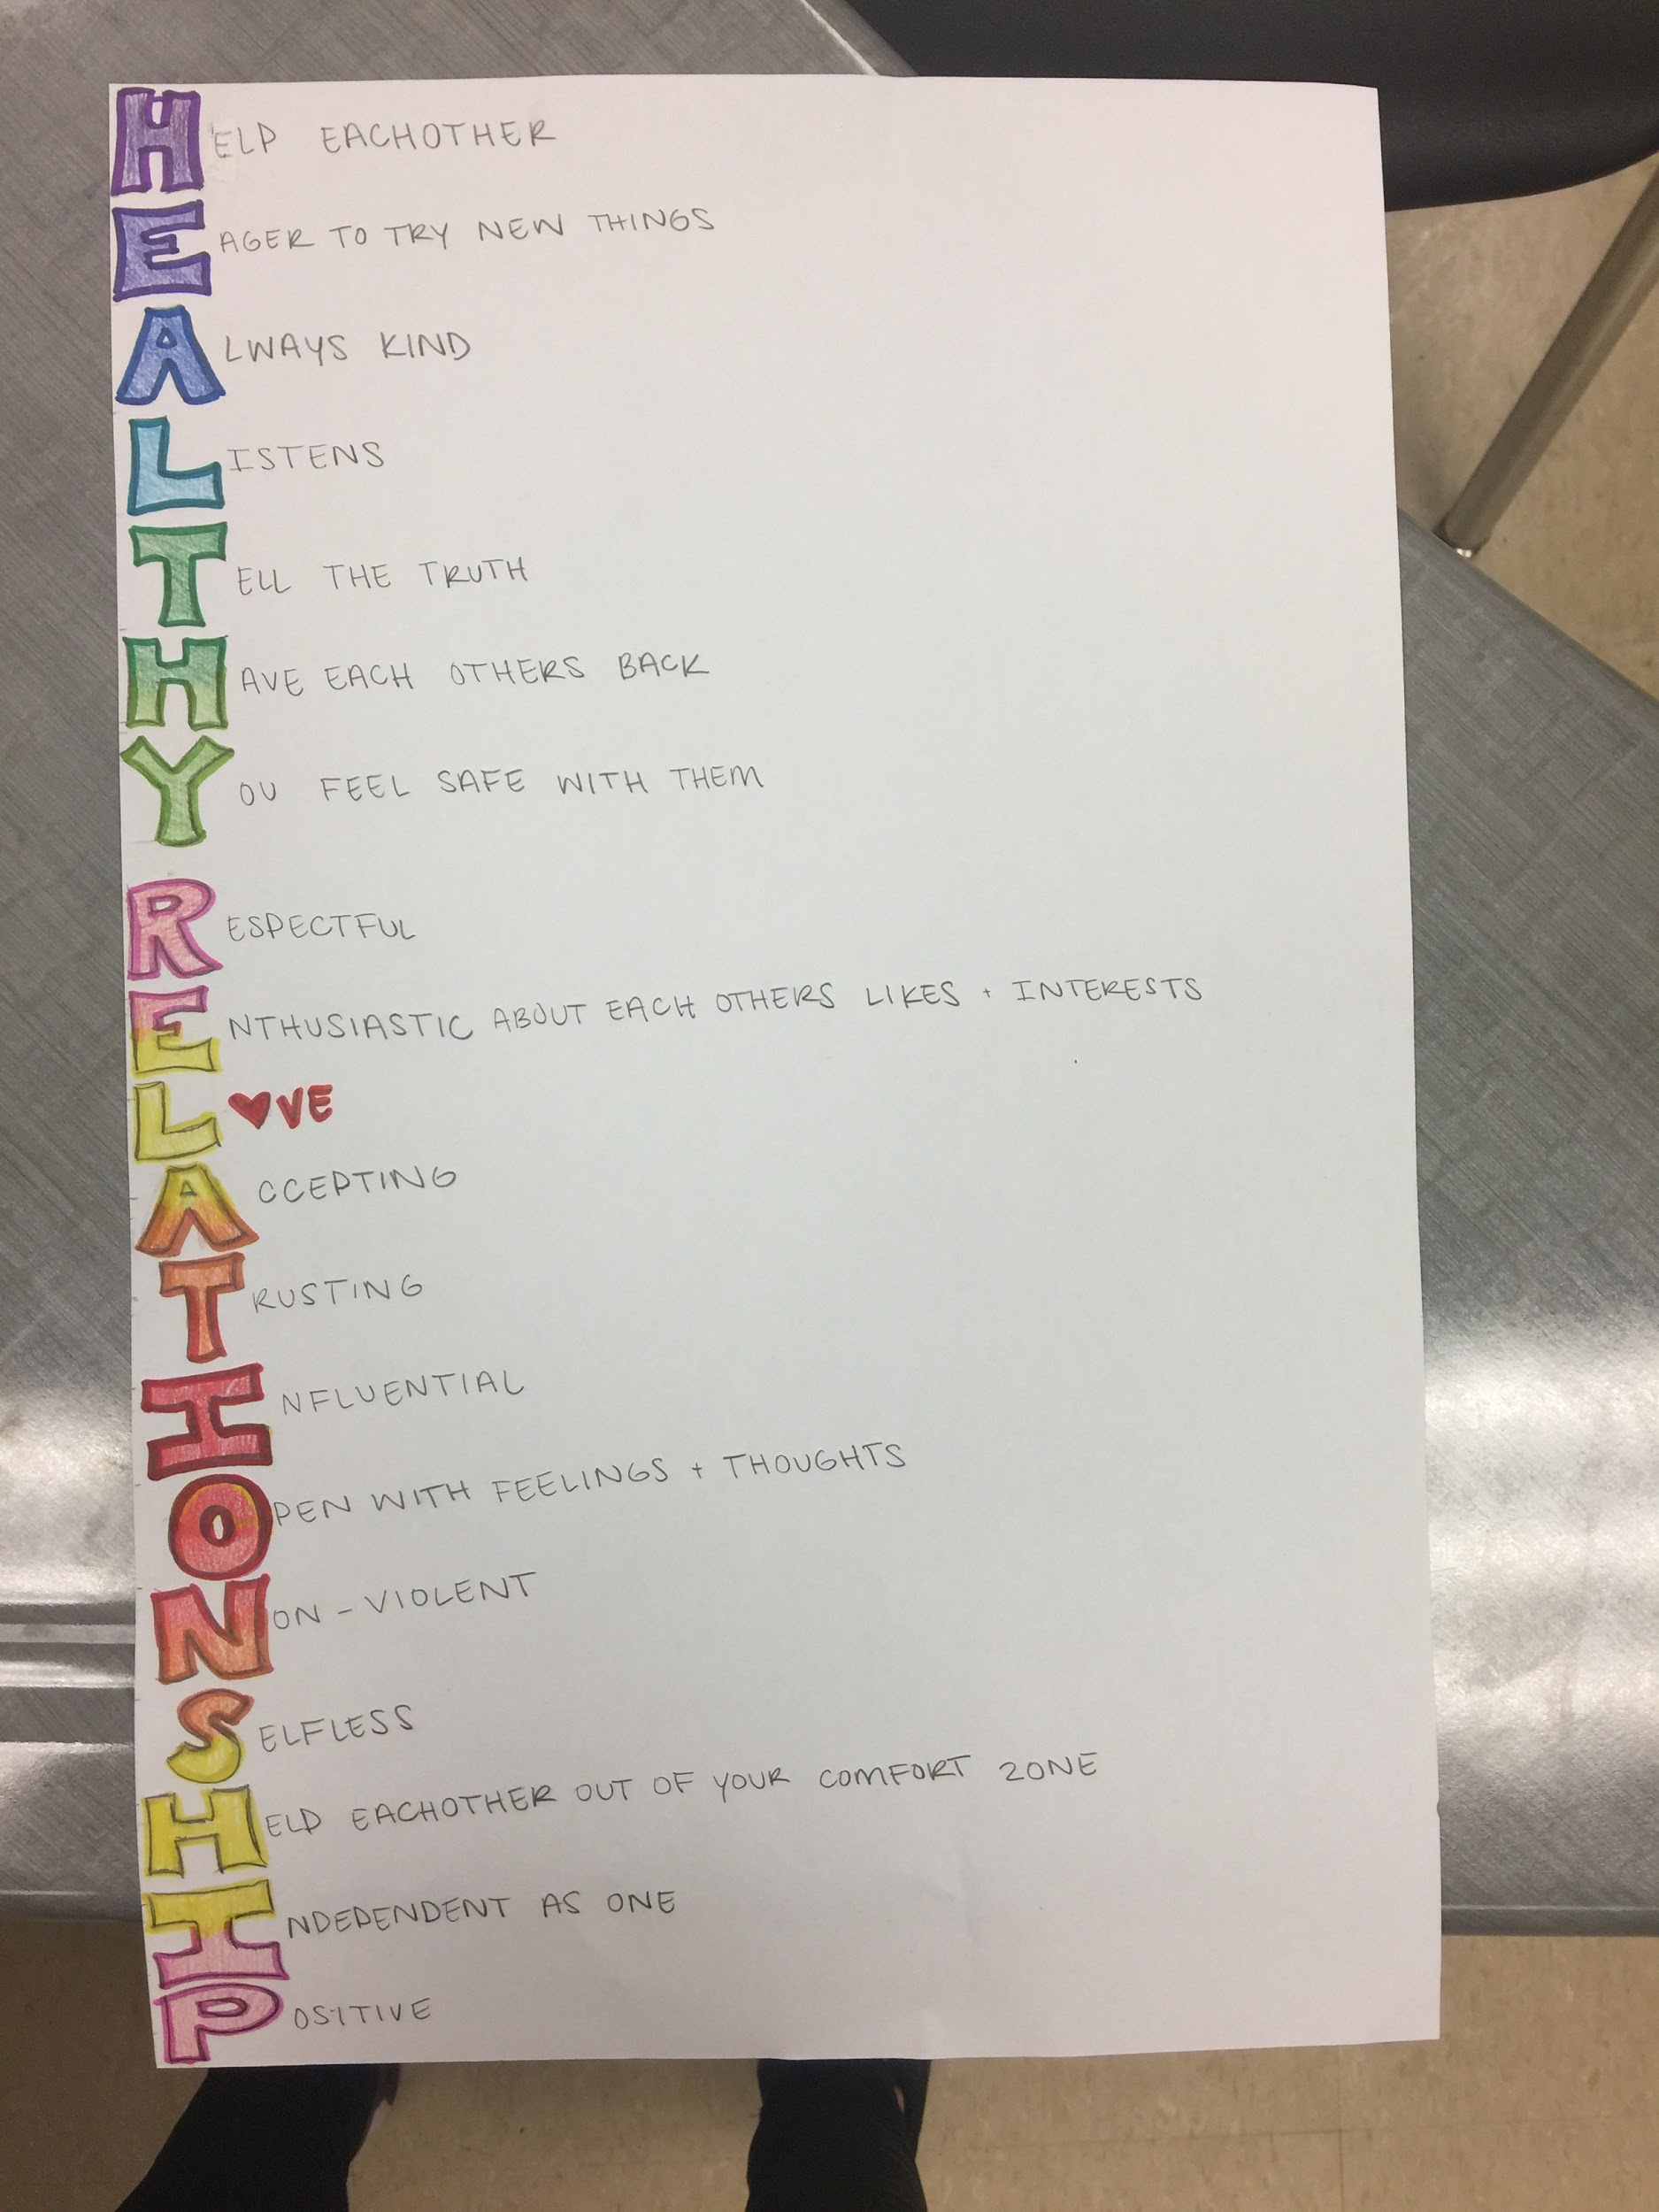 HELP EACHOTHER
EAGER TO TRY NEW THINGS
ALWAYS KIND
LISTENS
TELL THE TRUTH
HAVE EACH OTHERS BACK
YOU FEEL SAFE WITH THEM
RESPECTFUL
ENTHUSIASTIC ABOUT EACH OTHERS LIKES + INTERESTS
L♥VE
ACCEPTING
TRUSTING
INFLUENTIAL
OPEN WITH FEELINGS + THOUGHTS
NON-VIOLENT
SELFLESS
HELP EACHOTHER OUT OF YOUR COMFORT ZONE
INDEPENDENT AS ONE
POSITIVE